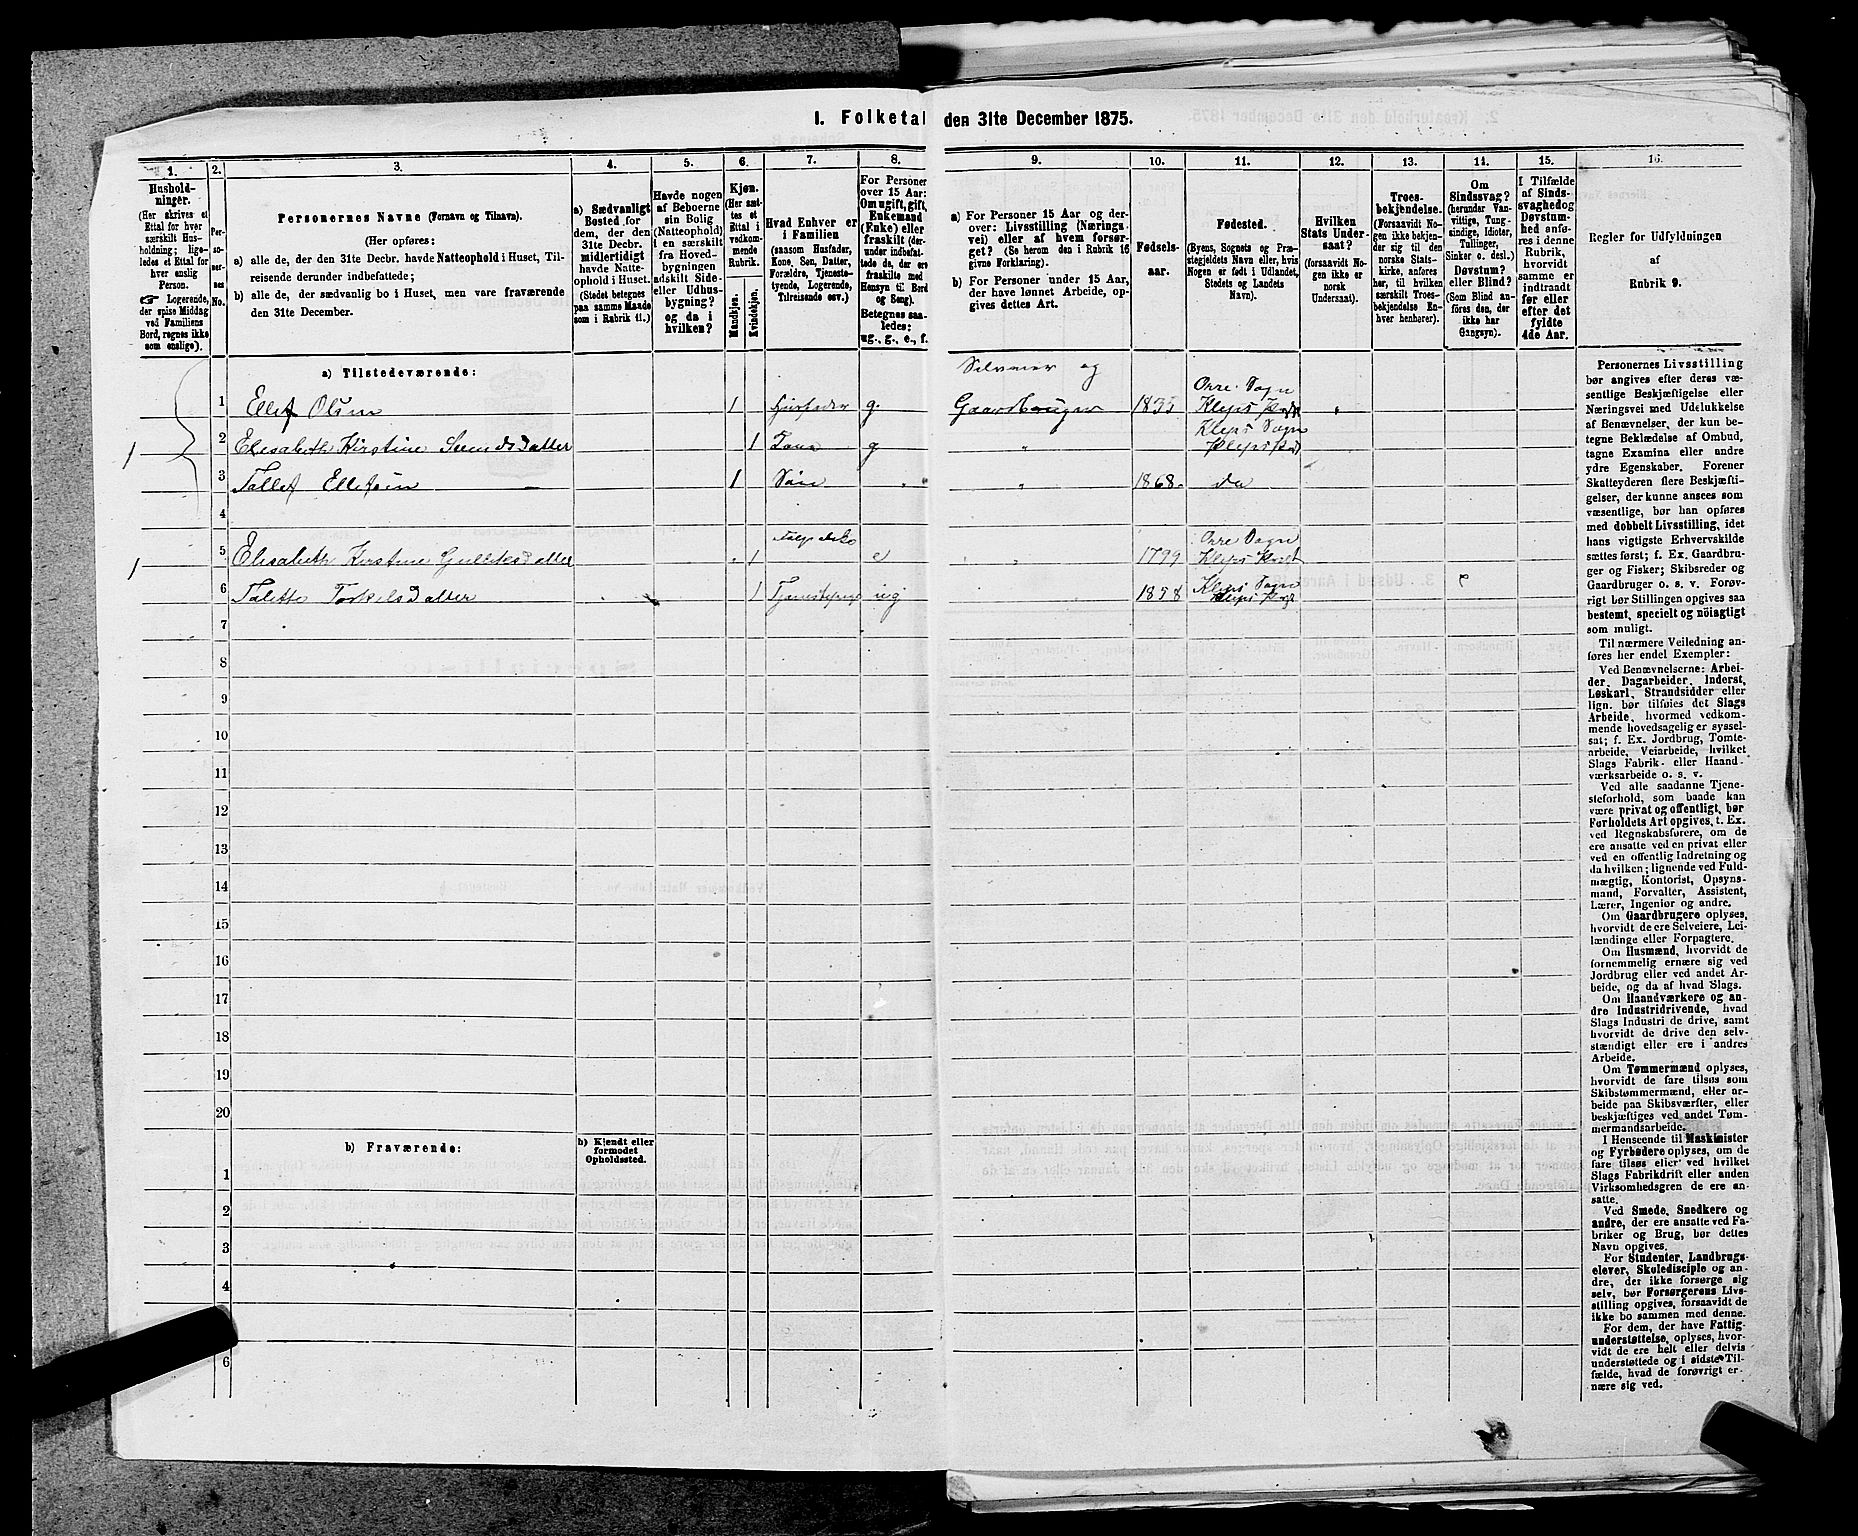 1. Folketal den 31te December 1875.
1.
Hushold-
ninger.
(Her skrives et
Ettal for hver
særskilt Hus-
holdning; lige-
ledes et Ettal for
hver enslig
Person.
☞ Logerende,
der spise Middag
ved Familiens
Bord, regnes ikke
som enslige).
2.
Per-
soner-
nes
No.
3.
Personernes Navne (Fornavn og Tilnavn).
(Her opføres:
a) alle de, der den 31te Decbr. havde Natteophold i Huset, Til-
reisende derunder indbefattede;
b) alle de, der sædvanlig bo i Huset, men vare fraværende
den 31te December.
4.
a) Sædvanligt
Bosted for
dem, der den
31te Decbr.
midlertidigt
havde Natte-
ophold i Huset.
(Stedet betegnes
paa samme Maade
som i Rubrik 11.)
5.
Havde nogen
af Beboerne
sin Bolig
(Natteophold)
i en særskilt
fra Hoved-
bygningen
adskilt Side-
eller Udhus-
bygning?
og da i
hvilken?
6.
Kjøn.
(Her sæt-
tes et
Ettal i
vedkom-
mende
Rubrik.
Mandkjøn.
Kvindekjøn.
7.
Hvad Enhver er
i Familien
(saasom Husfader,
Kone, Søn, Datter,
Forældre, Tjeneste-
tyende, Logerende,
Tilreisende osv.)
8.
For Personer
over 15 Aar:
Om ugift, gift,
Enkemand
(Enke) eller
fraskilt (der-
under indbefat-
tede de, der ere
fraskilte med
Hensyn til Bord
og Seng).
Betegnes saa-
ledes:
ug., g., e., f.
9.
a) For Personer 15 Aar og der-
over: Livsstilling (Nærings-
vei) eller af hvem forsør-
get? (Se herom den i Rubrik 16
givne Forklaring).
b) For Personer under 15 Aar,
der have lønnet Arbeide, op-
gives dettes Art.
10.
Fødsels-
aar.
11.
Fødested.
(Byens, Sognets og Præ-
stegjeldets Navn eller, hvis
Nogen er født i Udlandet,
Stedets og Landets
Navn).
12.
Hvilken
Stats Under-
saat?
(forsaavidt No-
gen ikke er
norsk
Undersaat).
13.
Troes-
bekjendelse.
(Forsaavidt No-
gen ikke bekjen-
der sig til den
norske Stats-
kirke, anføres
her, til hvilken
særskilt Troes-
bekjendelse En-
hver henhører).
14.
Om
Sindssvag?
(herunder Van-
vittige, Tung-
sindige, Idioter,
Tullinger,
Sinker o. desl.)
Døvstum?
eller Blind?
(Som Blind an-
føres den, der
ikke har
Gangsyn).
15.
I Tilfælde
af Sinds-
svaghed og
Døvstum-
hed anfø-
res i denne
Rubrik,
hvorvidt
samme er
indtraadt
før eller
efter det
fyldte
4de Aar.
16.
Regler for Udfyldningen
af
Rubrik 9.
a) Tilstedeværende:
Selveier og
1 Ellef Olsen 1 Husfader g. Gaardbruger 1835 Orre Sogn
Kleps Præst
1 2 Elisabeth Kirstine Svendsdatter 1 Kone g " Kleps Sogn
Kleps Præst
3 Tollef Ellefsen 1 Søn " 1868 do
4
1 5 Elisabeth Kirstine Gulliksdatter 1 e " 1799 Orre Sogn
Kleps Præst
6 Talette Torkelsdatter 1 ug 1858 Kleps Sogn
Kleps Præst
7
8
9
10
11
12
13
14
15
16
17
18
19
20
b) Fraværende:
b) Kjendt eller
formodet
Opholdssted.
1
2
3
4
6
Personernes Livsstilling
bør angives efter deres væ-
sentlige Beskjæftigelse eller
Næringsvei med Udelukkelse
af Benævnelser, der kun be-
tegne Beklædelse af Ombud,
tagne Examina eller andre
ydre Egenskaber. Forener
Skatteyderen flere Beskjæfti-
gelser, der kunne ansees som
væsentlige, bør han opføres
med dobbelt Livsstilling, idet
hans vigtigste Erhvervskilde
sættes først; f. Ex. Gaardbru-
ger og Fisker; Skibsreder og
Gaardbruger o. s. v. Forøv-
rigt bør Stillingen opgives saa
bestemt, specielt og nøiagtigt
som muligt.
Til nærmere Veiledning an-
føres her endel Exempler:
Ved Benævnelserne: Arbei-
der, Dagarbeider, Inderst,
Løskarl, Strandsidder eller
lign. bør tilføies det Slags
Arbeide, hvormed vedkom-
mende hovedsagelig er syssel-
sat; f. Ex. Jordbrug, Tomte-
arbeide, Veiarbeide, hvilket
Slags Fabrik- eller Haand-
værksarbeide o. s. v.
Ved alle saadanne Tjene-
steforhold, som baade kan
være privat og offentligt, bør
Forholdets Art opgives, t. Ex.
ved Regnskabsførere, om de
ere ansatte ved en privat eller
ved en offentlig Indretning og
da hvilken; lignende ved Fuld-
mægtig, Kontorist, Opsyns-
mand, Forvalter, Assistent,
Lærer, Ingeniør og andre.
Om Gaardbrugere oplyses,
hvorvidt de ere Selveiere, Lei-
lændinge eller Forpagtere.
Om Husmænd, hvorvidt de
fornemmelig ernære sig ved
Jordbrug eller ved andet Ar-
beide, og da af hvad Slags.
Om Haandværkere og an-
dre Industridrivende, hvad
Slags Industri de drive, samt
hvorvidt de drive den selv-
stændigt eller ere i andres
Arbeide.
Om Tømmermænd oplyses,
hvorvidt de fare tilsøs som
Skibstømmermænd, eller ar-
beide paa Skibsværfter, eller
beskjæftiges ved andet Tøm-
mermandsarbeide.
I Henseende til Maskinister
og Fyrbødere oplyses, om de
fare tilsøs eller ved hvilket
Slags Fabrikdrift eller anden
Virksomhedsgren de ere an-
satte.
Ved Smede, Snedkere og
andre, der ere ansatte ved Fa-
briker og Brug, bør dettes
Navn opgives.
For Studenter, Landbrugs-
elever, Skoledisciple og an-
dre, der ikke forsørge sig
selv, bør Forsørgerens Livs-
stilling opgives, forsaavidt de
ikke bo sammen med denne.
For dem, der have Fattig-
understøttelse, oplyses, hvor-
vidt de ere helt eller delvis
understøttede og i sidste Til-
fælde, hvad de forøvrigt er-
nære sig ved.